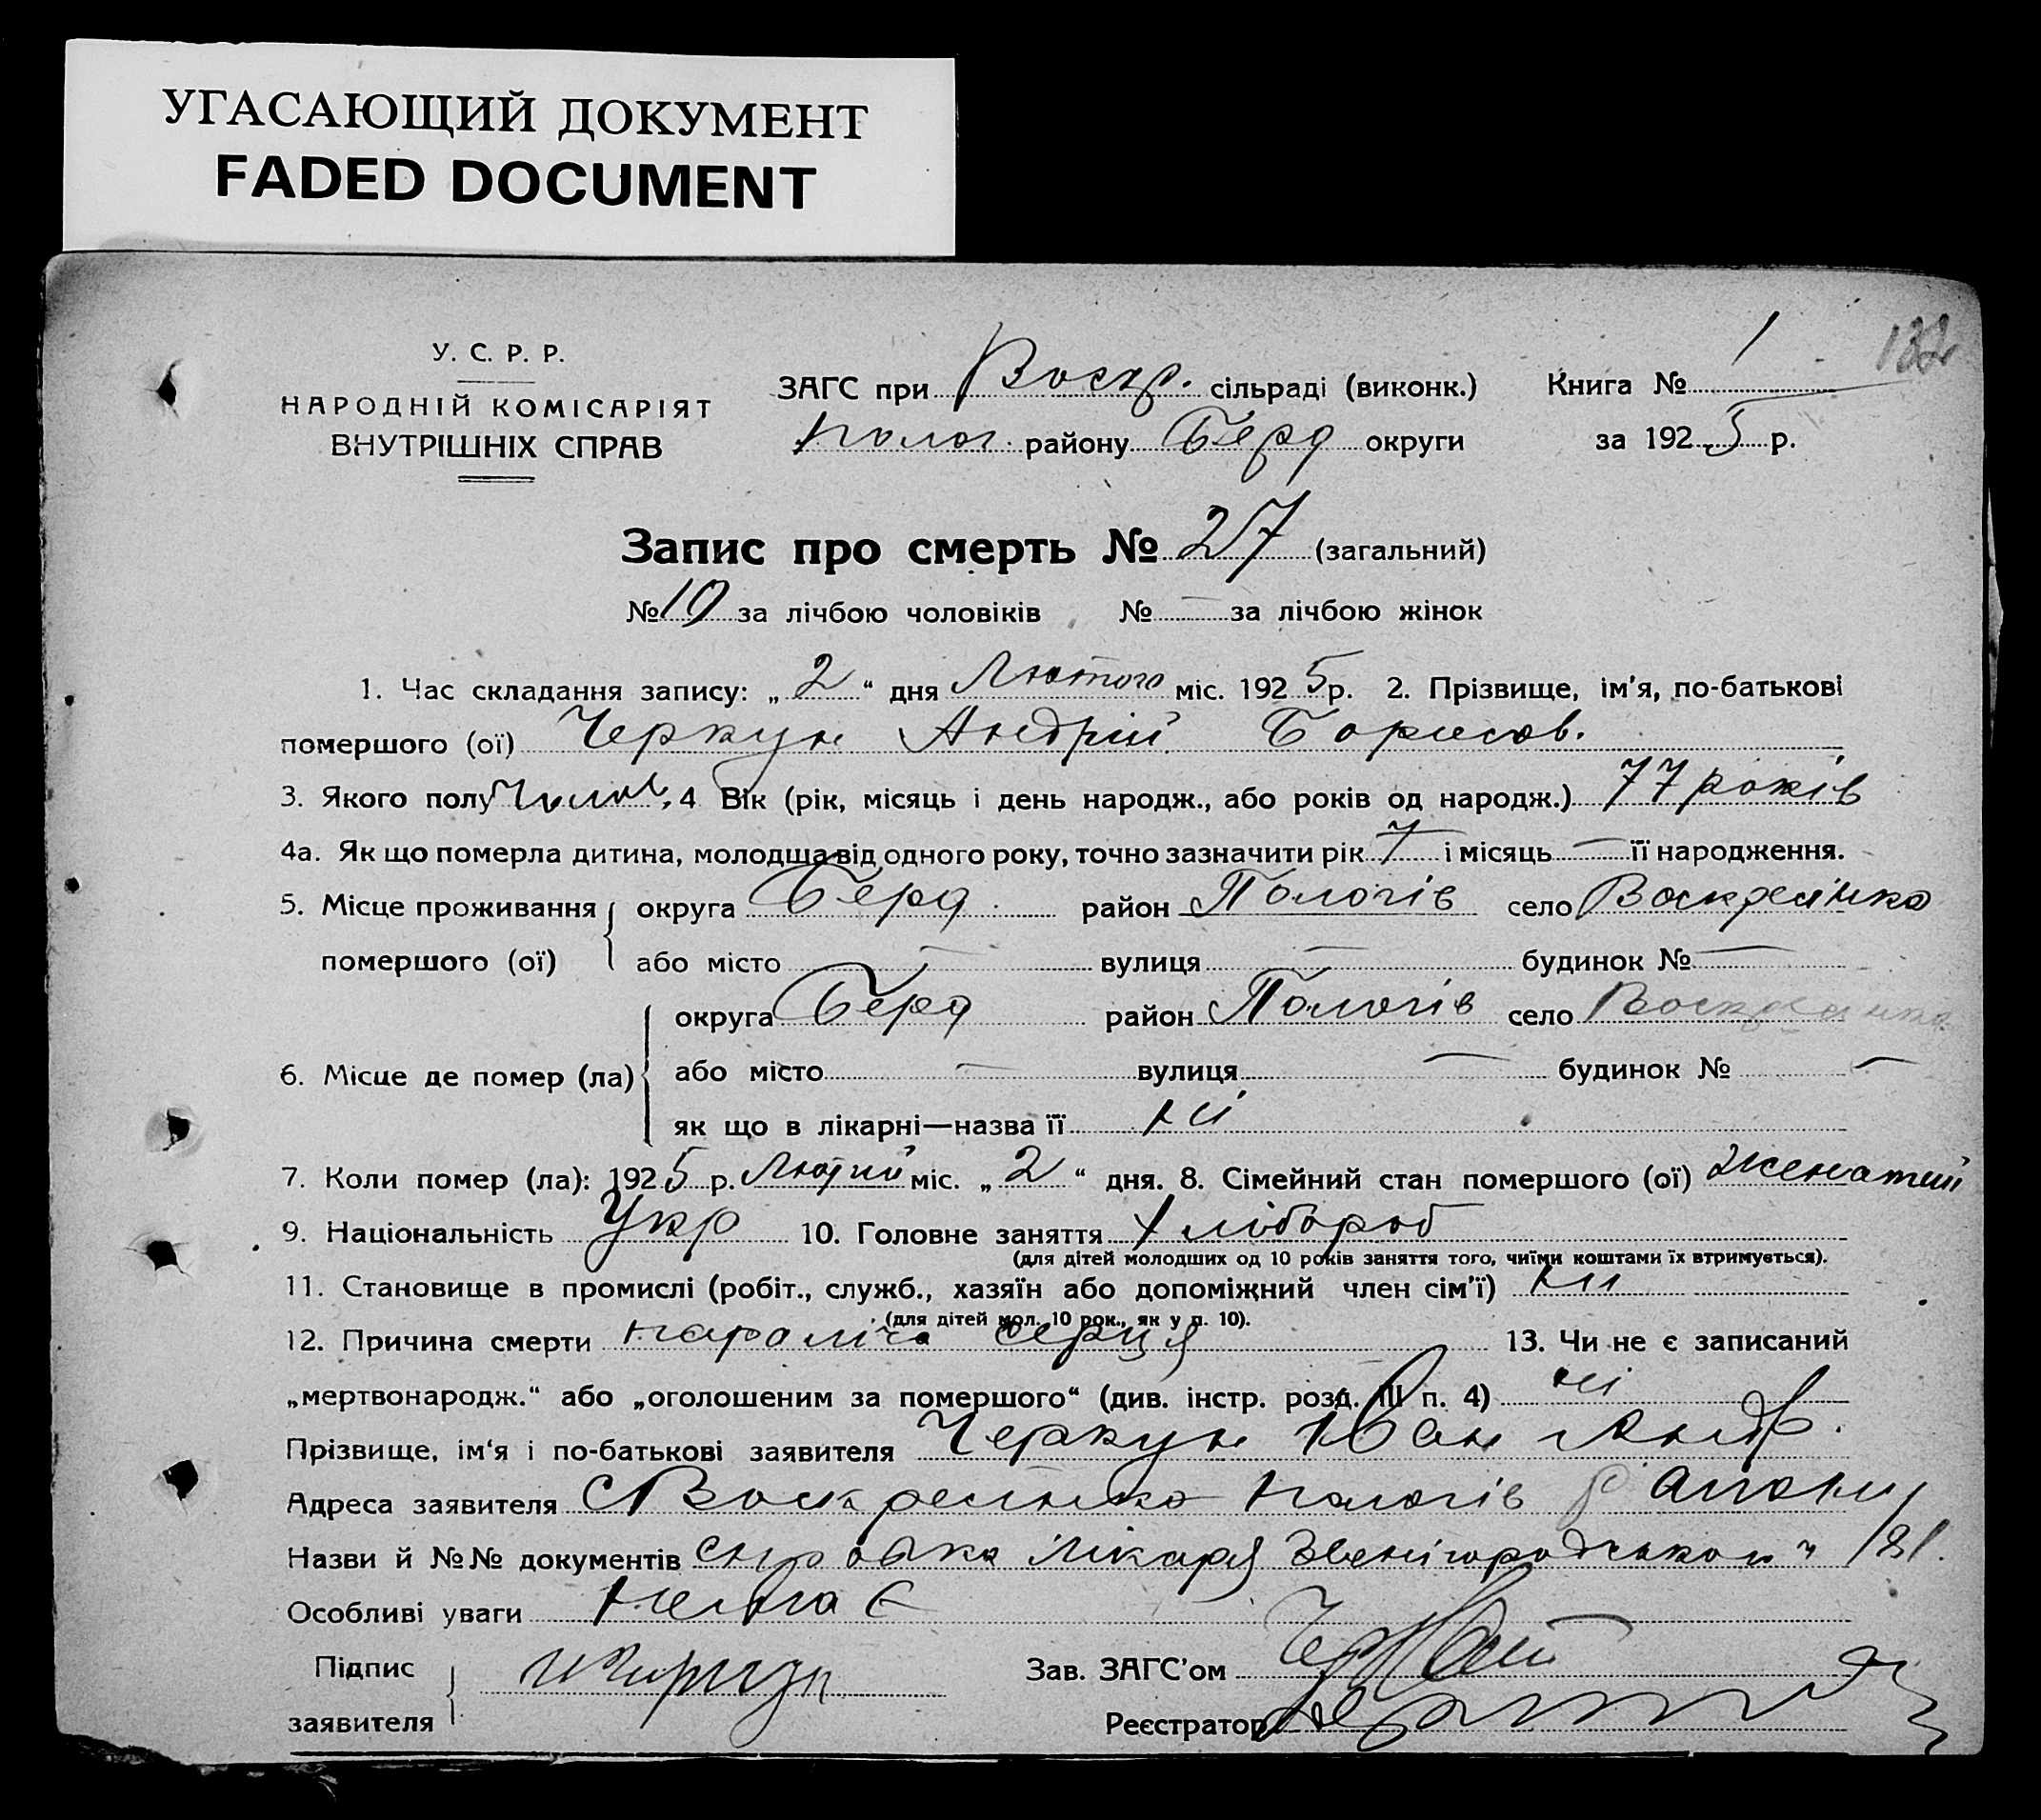 УГАСАЮЩИЙ ДОКУМЕНТ
FADED DOCUMENT
132
У. С. Р. Р.
НАРОДНІЙ КОМІСАРІЯТ
ВНУТРІШНІХ СПРАВ
ЗАГС при Воскр. сільраді (виконк.) Книга № 1
Полог. району Берд округи за 1925 р.
Запис про смерть № 27 (загальний)
№ 19 за лічбою чоловіків № — за лічбою жінок
1. Час складання запису: „2“ дня Лютого міс. 1925 р. 2. Прізвище, ім'я, по-батькові
помершого (ої) Черкун Андрій Борисов.
3. Якого полу Чолов, 4 Вік (рік, місяць і день народж., або років од народж.) 77 років
4а. Як що померла дитина, молодша від одного року, точно зазначити рік і місяць — її народження.
5. Місце проживання помершого (ої) округа Берд. район Пологів село Воскресінка
або місто — вулиця — будинок № —
6. Місце де помер (ла) округа Берд район Пологів село Воскресінка
або місто — вулиця — будинок № —
як що в лікарні—назва її ні
7. Коли помер (ла): 1925 р. Лютий міс. „2“ дня. 8. Сімейний стан помершого (ої) Женатий
9. Національність Укр 10. Головне заняття Хлібороб
(для дітей молодших од 10 років заняття того, чиїми коштами їх втримується).
11. Становище в промислі (робіт., служб., хазяїн або допоміжний член сім'ї) ни
(для дітей мол. 10 рок., як у п. 10).
12. Причина смерти параліча серця 13. Чи не є записаний
„мертвонародж.“ або „оголошеним за помершого“ (див. інстр. розд. III п. 4) ні
Прізвище, ім'я і по-батькові заявителя Черкун Іван Андр.
Адреса заявителя с Воскресінка Пологів району
Назви й №№ документів справка лікаря
Особливі уваги немає
Підпис заявителя
Зав. ЗАГС'ом
Реєстратор